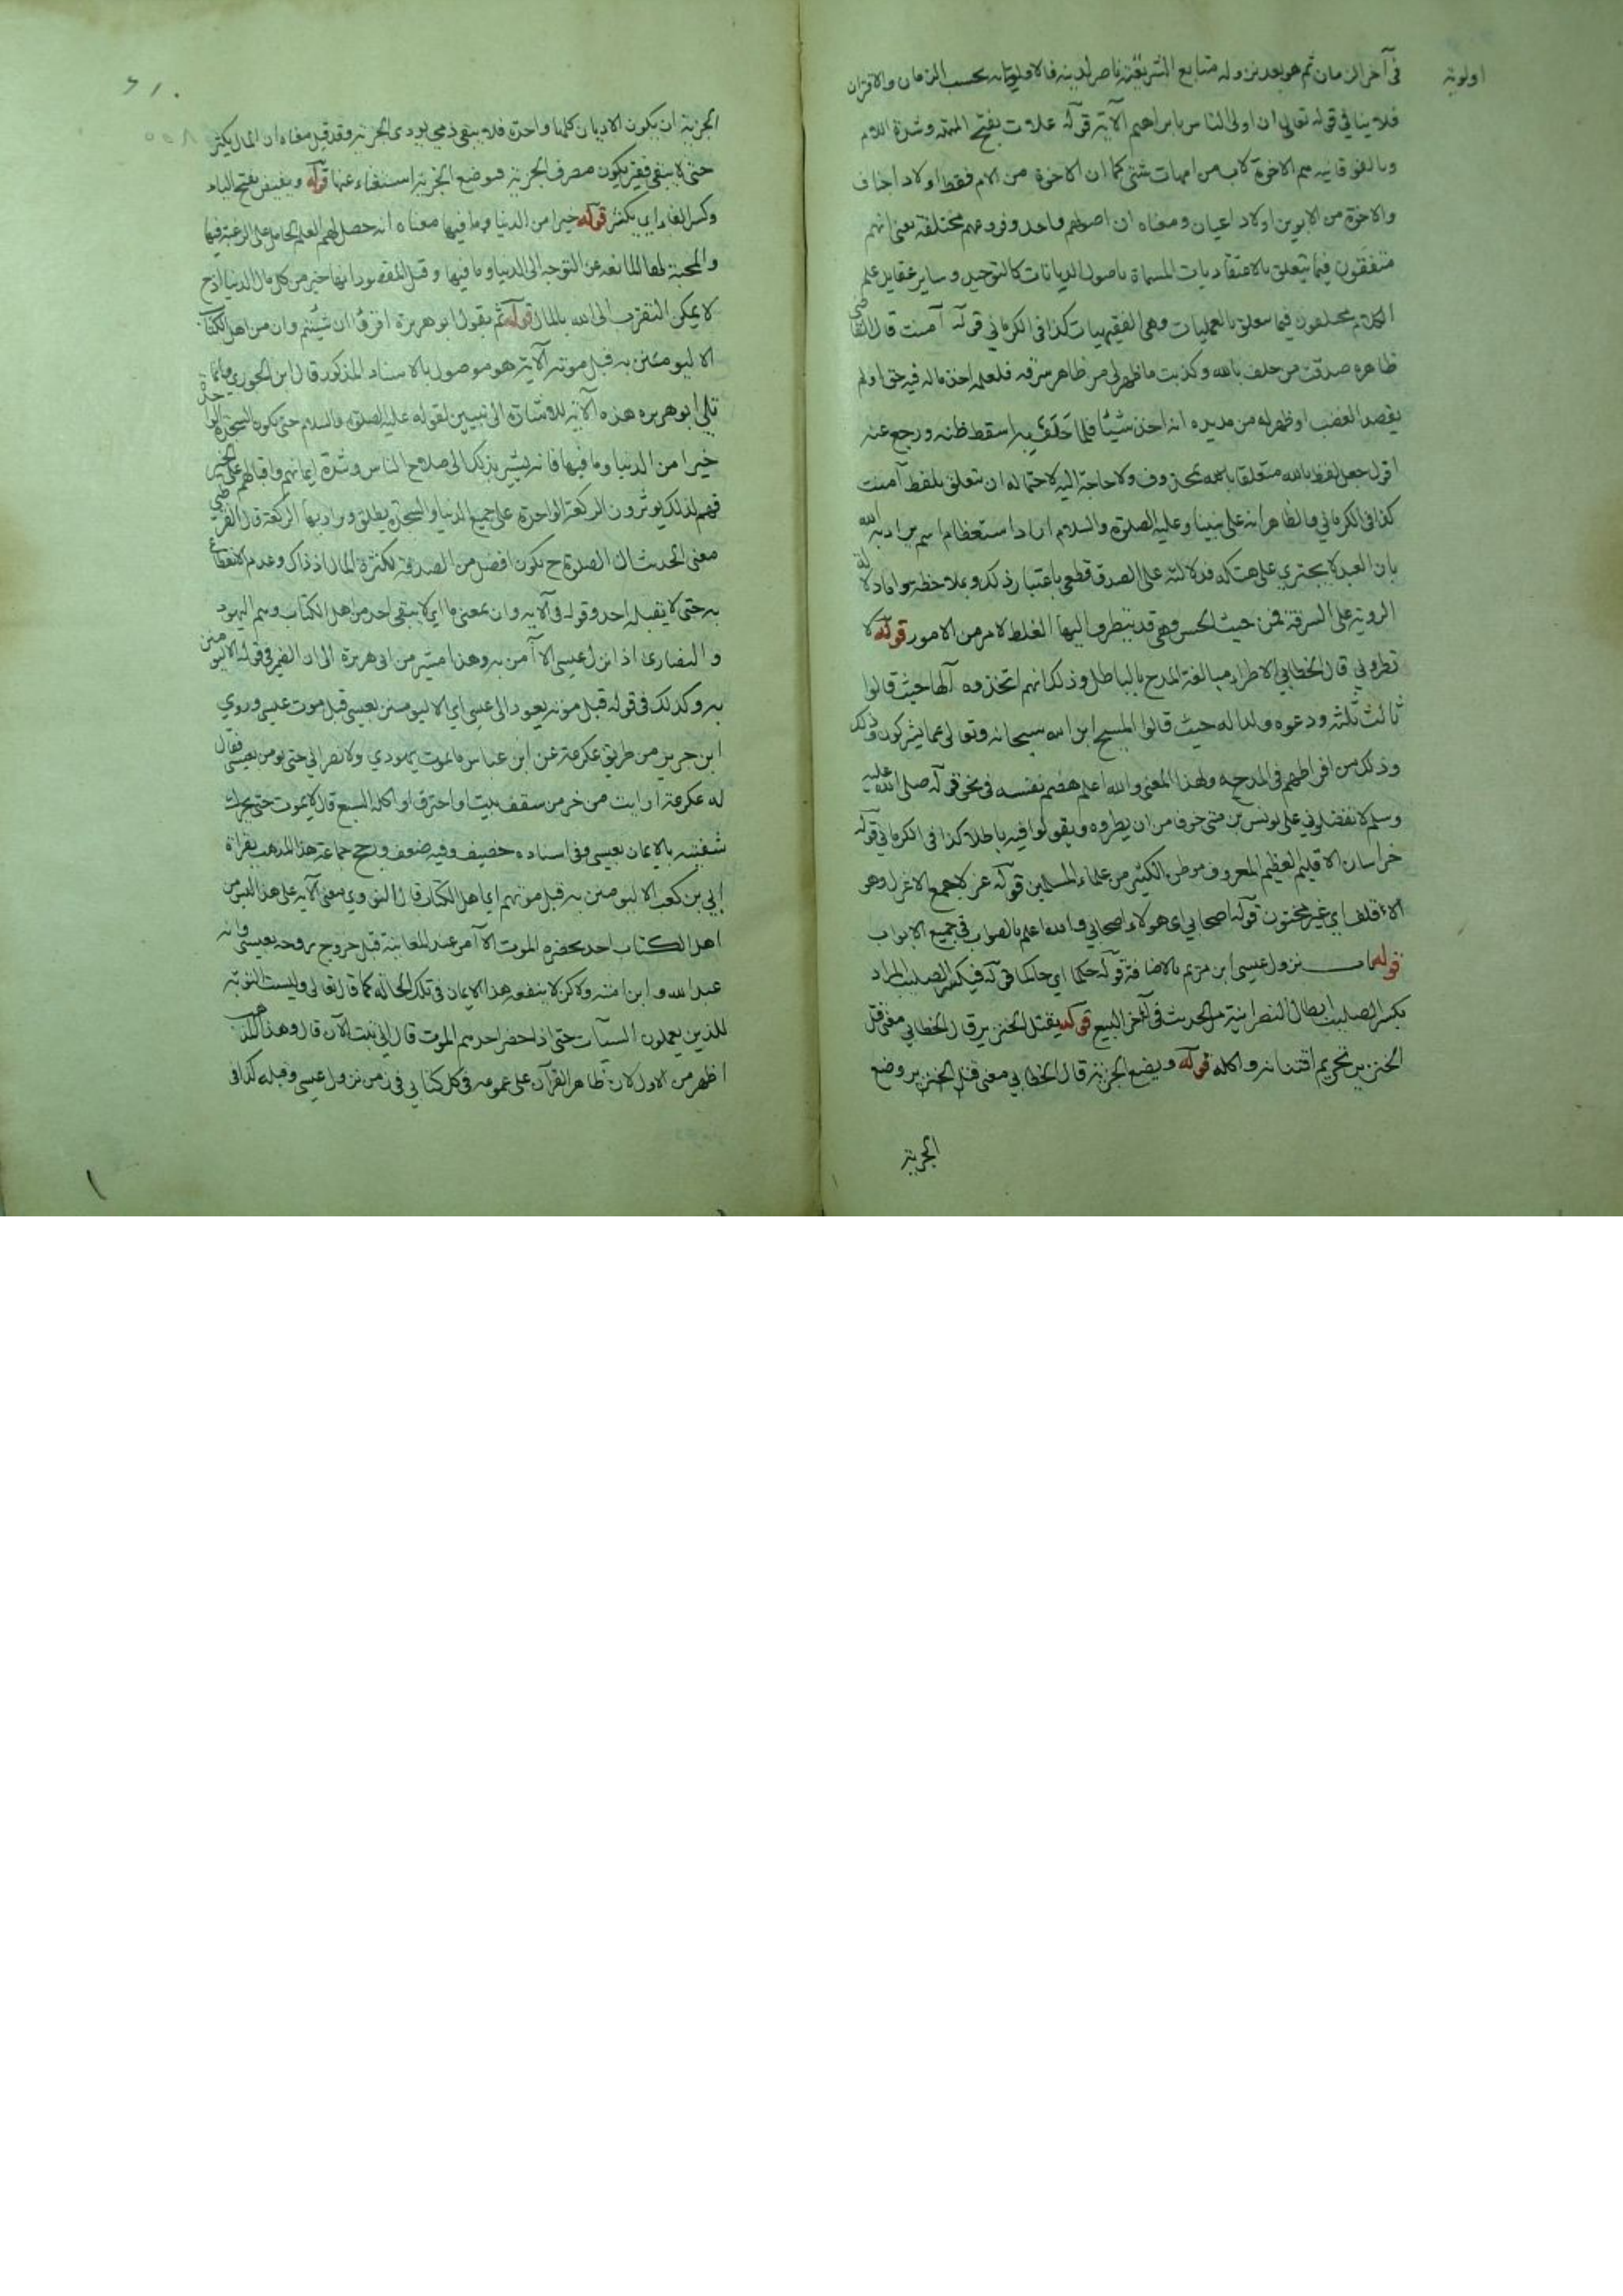 في آخر الزمان ثم هو بعد نزوله متابع الشريعته ناصر لدينه فالاولويته بحسب الزمان والاقتران
اولوية
فلا ينافي قوله تعالى ان اولى الناس بابراهيم الآية قوله علات بفتح المهملة وشدة اللام
وبالفوقانية هم الاخوة لاب من امهات شتى كما ان الاخوة من الام فقط اولاد اخياف
والاخوة من الابوين اولاد اعيان ومعناه ان اصولهم واحد وفروعهم مختلفة يعني انهم
متفقون فيما يتعلق بالاعتقاديات المسماة باصول الديانات كالتوحيد وساير عقايد علم
الكلام مختلفون فيما يتعلق بالعمليات وهي الفقهيات كذا في الكرماني قوله آمنت قال القاضي
ظاهره صدقت من حلف بالله وكذبت ما ظهر لي من ظاهر سرقه فلعله اخذ ماله فيه حق اولم
يقصد الغضب او ظهر له من مد يده انه اخذ شيئا فلما حلف به اسقط ظنه ورجع عنه
اقول جعل لفظ بالله متعلقا بمحذوف ولا حاجة اليه لاحتماله ان يتعلق بلفظ آمنت
كذا في الكرماني والظاهر انه على نبينا وعليه الصلوة والسلام اراد استعظام اسم الله
بان العبد لا يجتري على هتكه فدلالته على الصدق قطعي باعتبار ذلك وبملاحظة
الروية على السرقة فمن حيث الحس وهي قد يتطرق اليها الغلط لامر من الامور قوله لا
تطروني قال الخطابي الاطراء مبالغة المدح بالباطل وذلك انهم اتخذوه آلها حيث قالوا
ثالث ثلثة ودعوه ولدا له حيث قالوا المسيح ابن الله سبحانه وتعالى عما يشركون وذلك
وذلك من افراطهم في المدحه ولهذا المعنى والله اعلم هضم نفسه في نحو قوله صلى الله عليه
وسلم لا تفضلوني على يونس بن متى خوفا من ان يطروه ويقولوا فيه باطلا كذا في الكرماني قوله
خراسان الاقليم العظيم المعروف موطن الكثير من علماء المسلمين قوله غرلا جمع الاغرل وهو
الاقلف اي غير مختون قوله اصحابي اي هولاء اصحابي والله اعلم بالصواب في جميع الابواب
قوله باب نزول عيسى ابن مريم بالاضافة قوله حكما اي حاكما قوله فيكسر الصليب المراد
بكسر الصليب ابطال النصرانية مر الحديث في آخر البيع قوله يقتل الخنزير قال الخطابي معنى قتل
الخنزير تحريم اقتنائه واكله قوله ويضع الجزية قال الخطابي معنى قتل الخنزير وضع
الجزية
الجزية ان يكون الاديان كلها واحدة فلا يبقى ذمي يودي الجزية وقد قيل معناه ان المال يكثر
حتى لا يبقى فقير يكون مصرف الجزية فوضع الجزية استغناء عنها قوله ويفيض بفتح الياء
وكسر الفاء اي يكثر قوله خيرا من الدنيا وما فيها معناه انه حصل لهم العلم الحامل على الرغبة فيها
والمحبة لها المانعة عن التوجه الى الدنيا وما فيها وقيل المقصود انها خير من كل مال الدنيا اذ ح
لا يمكن التقرب الى الله بالمال قوله ثم يقول ابو هريرة اقرؤا ان شئتم وان من اهل الكتاب
الا ليومنن به قبل موته الآية هو موصول بالاسناد المذكور قال ابن الجوزي وانما
تلى ابو هريرة هذه الآية للاشارة الى تبيين لقوله عليه الصلوة والسلام حتى يكون السجدة الواحدة
خيرا من الدنيا وما فيها فانه يشير بذلك الى صلاح الناس وشدة ايمانهم واقبالهم على الخير
فهم لذلك يوثرون الركعة الواحدة على جميع الدنيا والسجدة يطلق ويراد بها الركعة قال القرطبي
معنى الحديث ان الصلوة ح يكون افضل من الصدقة لكثرة المال اذ ذاك وعدم الانتفاع
به حتى لا يقبله احد وقوله في الآية وان بمعنى ما اي لا يبقى احد من اهل الكتاب وهم اليهود
والنصارى اذا نزل عيسى الا آمن به وهذا مشير من ابي هريرة الى ان الضمير في قوله الا ليومنن
به وكذلك في قوله قبل موته يعود الى عيسى اي الا ليومنن بعيسى قبل موت عيسى وروي
ابن جرير من طريق عكرمة عن ابن عباس ما يموت يهودي ولا نصراني حتى يومن بعيسى فقال
له عكرمة ارايت من خر من سقف بيت او احترق او اكله السبع قال لا يموت حتى يحرك
شفتيه بالايمان بعيسى وفي اسناده خصيف وفيه ضعف ورجح جماعة هذا المذهب بقراة
ابي بن كعب الا ليومنن به قبل موتهم اي اهل الكتاب قال النووي معنى الآية على هذا ليس من
اهل الكتاب احد يحضره الموت الا آمن عند المعاينة قبل خروج روحه بعيسى وانه
عبد الله وابن امته ولاكن لا ينفعه هذا الايمان في تلك الحاله كما قال تعالى وليست التوبة
للذين يعملون السيآت حتى اذا حضر احدهم الموت قال اني تبت الآن قال وهذا المذهب
اظهر من الاول لان ظاهر القرآن على عمومه في كل كتابي في زمن نزول عيسى وقبله كذا في